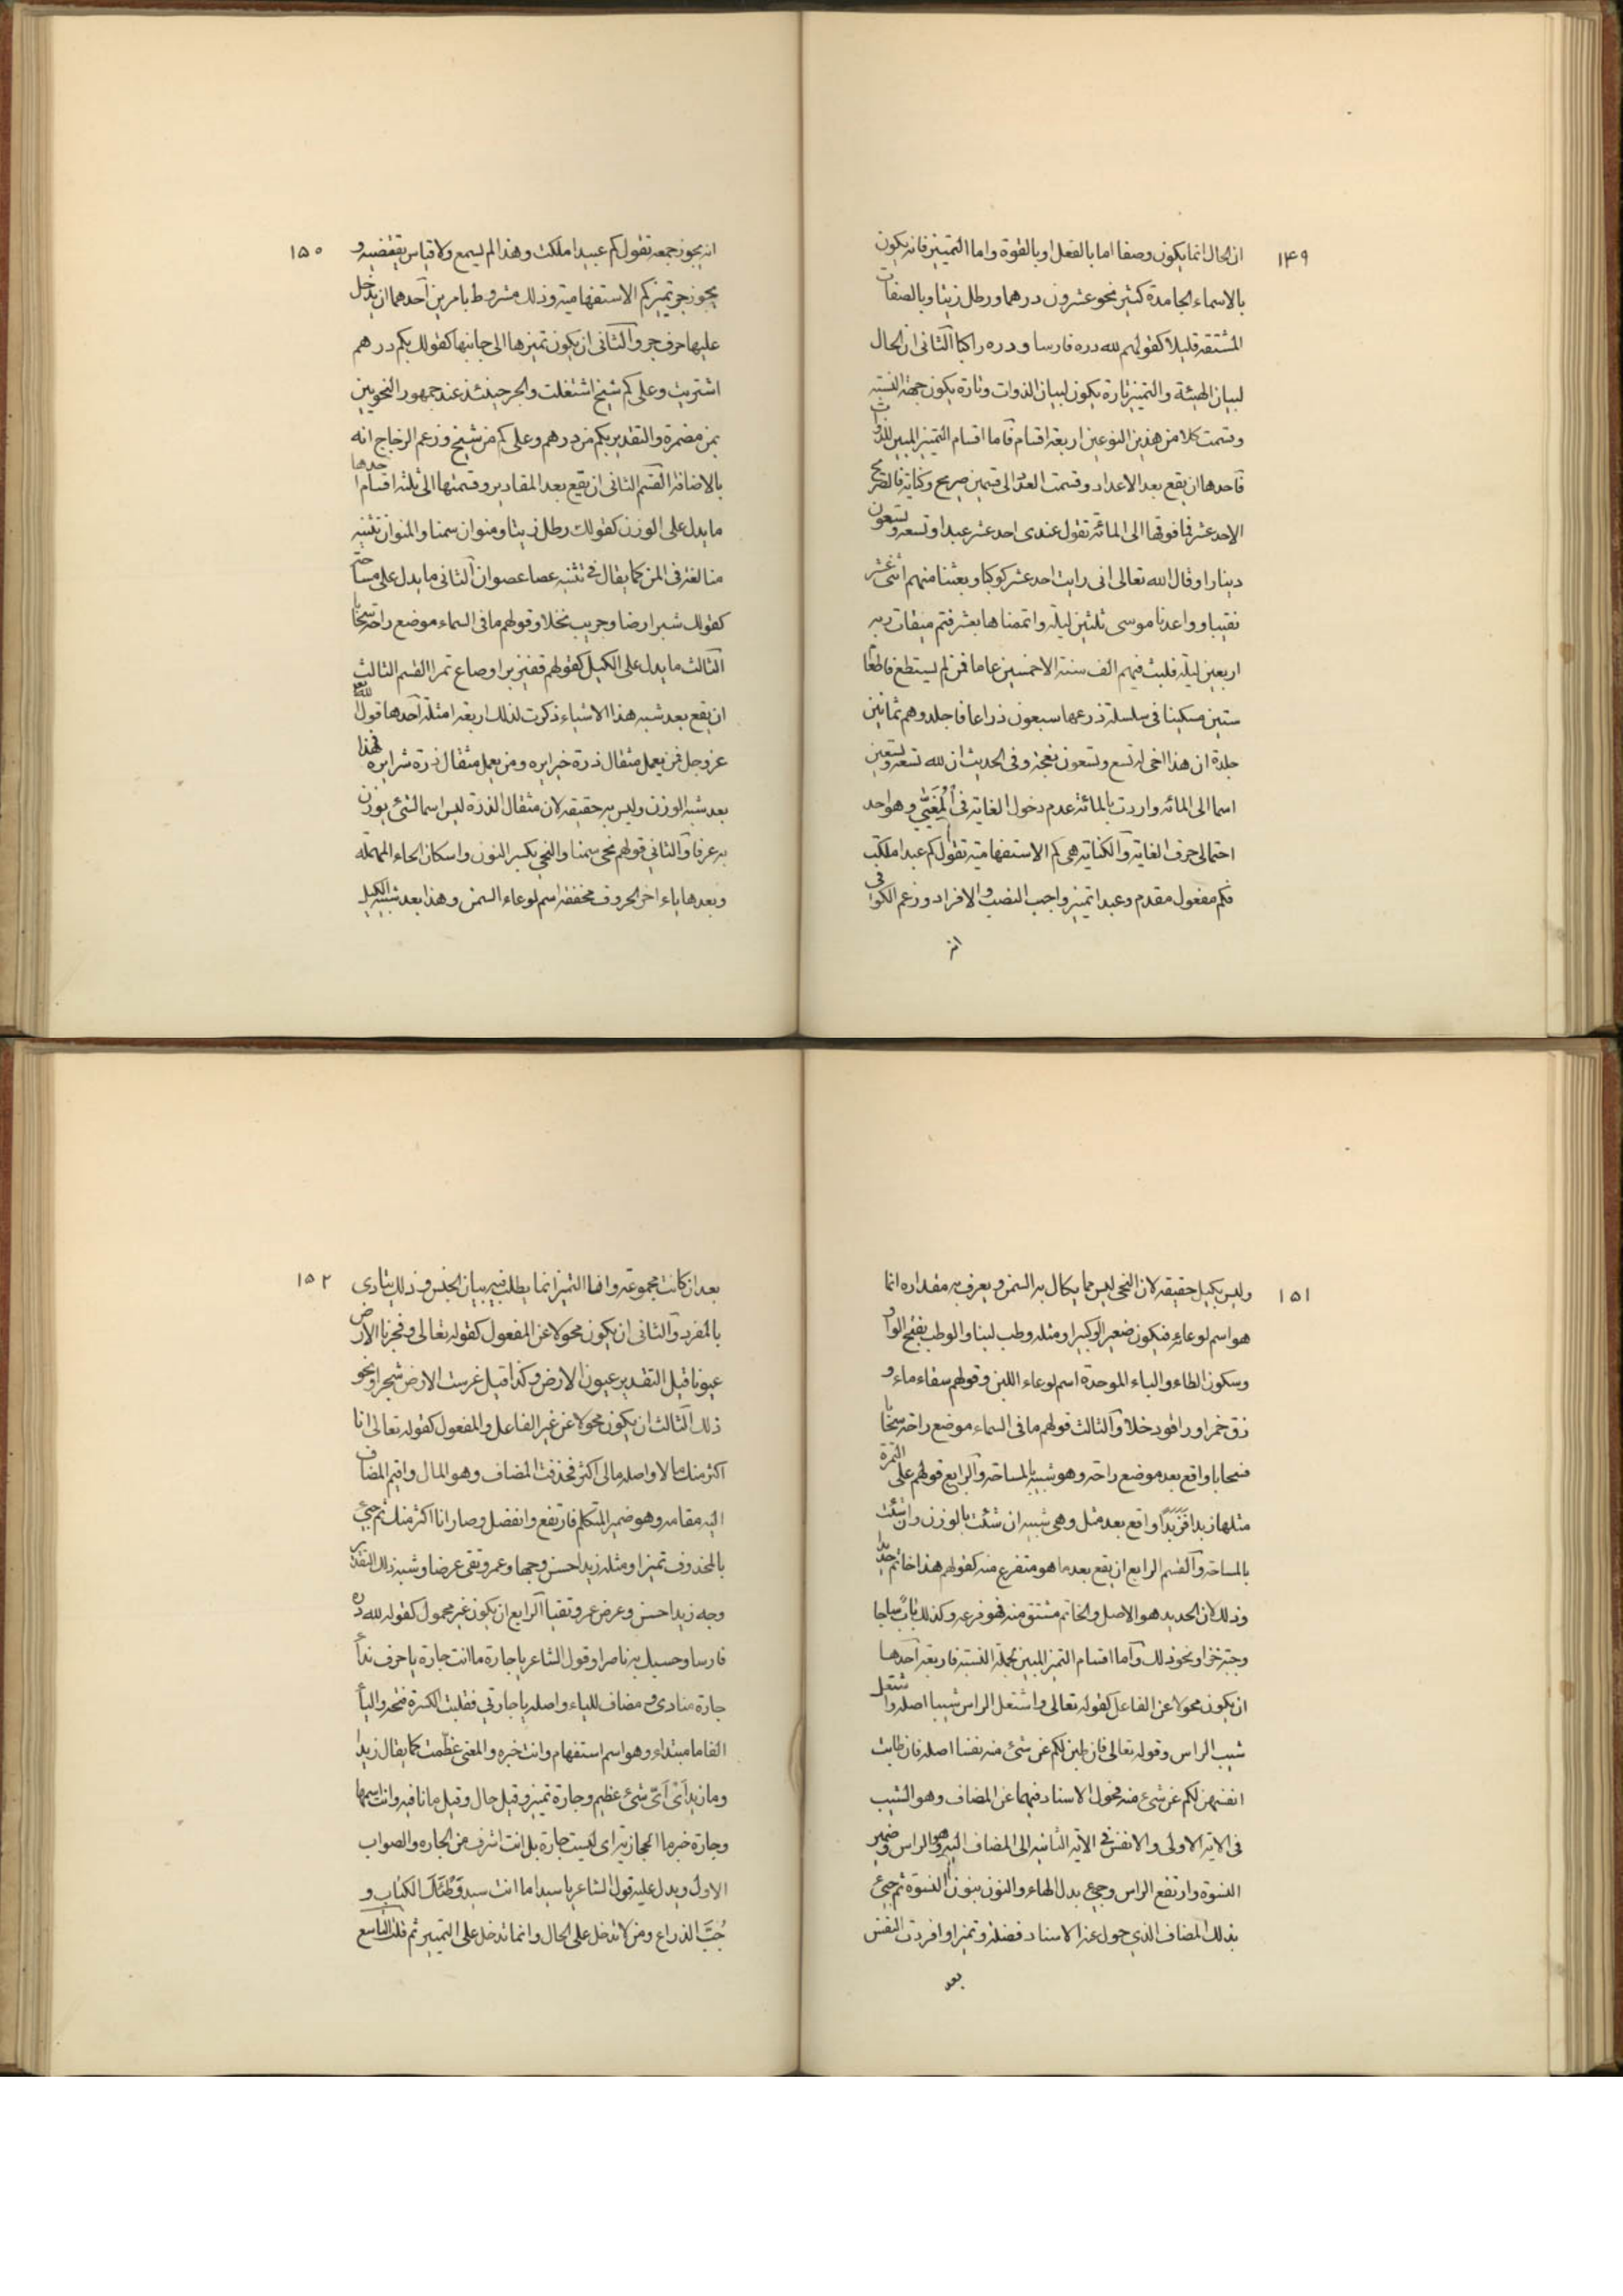 ١٤٩
ان الحال انما يكون وصفا اما بالفعل او بالقوة واما التمييز فانه يكون
بالاسماء الجامدة كثير نحو عشرون درهما ورطل زيتا وبالصفات
المشتقه قليلا كقولهم لله دره فارسا ودره راكبا الثانى ان الحال
لبيان الهيئة والتميز تارة يكون لبيان الذوات وتارة يكون جهة النسبة
وقسمت كلا من هذين النوعين اربعة اقسام فاما اقسام التميز المبين للذوات
فاحدها ان يقع بعد الاعداد وقسمت العدد الى قسمين صريح وكناية فالصريح
الاحد عشر فما فوقها الى المائة تقول عندى احد عشر عبدا وتسعة وتسعون
دينارا وقال الله تعالى انى رايت احد عشر كوكبا وبعثنا منهم اثنى عشر
نقيبا وواعدنا موسى ثلثين ليلة واتممناها بعشر فتم ميقات ربه
اربعين ليلة فلبث فيهم الف سنة الا خمسين عاما فمن لم يستطع فاطعام
ستين مسكينا فى سلسلة ذرعها سبعون ذراعا فاجلدوهم ثمانين
جلدة ان هذا اخى له تسع وتسعون نعجة وفى الحديث ان لله تسعة وتسعين
اسما الى المائه واردت بالمائة عدم دخول الغاية فى الْمُغَيّى وهو احد
احتمالى حرف الغاية والكناية هى كم الاستفهامية تقول كم عبدا ملكت
فكم مفعول مقدم وعبدا تميز واجب النصب والافراد وزعم الكوفى
انه
١٥٠
انه يجوز جمعه تقول كم عبيدا ملكت وهذا لم يسمع ولا قياس يقتضيه و
يجوز جر تميز كم الاستفهامية وذلك مشروط بامرين احدهما ان يدخل
عليها حرف جر والثانى ان يكون تميزها الى جانبها كقولك بكم درهم
اشتريت وعلى كم شيخ اشتغلت والجر حينئذ عند جمهور النحويين
بمن مضمرة والتقدير بكم من درهم وعلى كم من شيخ وزعم الزجاج انه
بالاضافة القسم الثانى ان يقع بعد المقادير وقسمتها الى ثلثة اقسام احدها
ما يدل على الوزن كقولك رطل زيتا ومنوان سمنا والمنوان تثنية
منا لغة فى المن كما يقال فى تثنيه عصا عصوان الثانى ما يدل على مساحة
كقولك شبر ارضا وجريب نخلا وقولهم ما فى السماء موضع راحة سحابا
الثالث ما يدل على الكيل كقولهم قفيز برا وصاع تمرا القسم الثالث
ان يقع بعد شبه هذا الاشياء ذكرت لذلك اربعة امثلة احدها قول الله
عز وجل فمن يعمل مثقال ذرة خيرا يره ومن يعمل مثقال ذرة شرا يره فهذا
بعد شبه الوزن وليس به حقيقه لان مثقال الذرة ليس اسما لشئ يوزن
به عرفا والثانى قولهم نحى سمنا والنحى بكسر النون واسكان الحاء المهملة
وبعدها ياء اخر الحروف مخففة اسم لوعاء السمن وهذا بعد شبيه الكيل
١٥١
وليس بكيل حقيقه لان النحى ليس مما يكال به السمن ويعرف به مقداره انما
هو اسم لوعائه فيكون صغيرا وكبيرا ومثله وطب لبنا والوطب بفتح الواو
وسكون الطاء والباء الموحدة اسم لوعاء اللبن وقولهم سقاء ماء و
زق خمرا وراقود خلا والثالث قولهم ما فى السماء موضع راحة سحابا
فسحابا واقع بعد موضع راحة وهو شبيه بالمساحة والرابع قولهم على التمرة
مثلها زبدا فَزَبَدًا واقع بعد مثل وهى شبيه ان شئت بالوزن وان شئت
بالمساحة والقسم الرابع ان يقع بعد ما هو متفرع منه كقولهم هذا خاتم حديد
وذلك لان الحديد هو الاصل والخاتم مشتق منه فهو فرعه وكذلك بابٌ ساجا
وجبة خزا ونحو ذلك واما اقسام التميز المبين لجهلة النسبة فاربعة احدها
ان يكون محولا عن الفاعل كقوله تعالى واشتعل الراس شيبا اصله واشتعل
شيب الراس وقوله تعالى فان طبن لكم عن شئ منه نفسا اصله فان طابت
انفسهن لكم عن شئ منه فحول الاسناد فيهما عن المضاف وهو الشيب
فى الاية الاولى والانفس فى الاية الثانيه الى المضاف اليه وهو الراس وضمير
النسوة وارتفع الراس وجيء بدل الهاء والنون بنون النسوة ثم جيء
بذلك المضاف الذى حول عنه الاسناد فضلة وتميزا وافردت النفس
بعد
١٥٢
بعد ان كانت مجموعة وانما التميز انما يطلب فيه بيان الجنس وذلك يتادى
بالمفرد والثانى ان يكون محولا عن المفعول كقوله تعالى وفجرنا الارض
عيونا قيل التقدير عيون الارض وكذا قيل غرست الارض شجرا ونحو
ذلك الثالث ان يكون محولا عن غير الفاعل والمفعول كقوله تعالى انا
اكثر منك مالا واصله مالى اكثر فحذفت المضاف وهو المال واقيم المضاف
اليه مقامه وهو ضمير المتكلم فارتفع وانفصل وصار انا اكثر منك ثم جيئ
بالمحذوف تميزا ومثله زيد احسن وجها وعمرو نقى عرضا وشبه ذلك التقدير
وجه زيد احسن وعرض عمرو نقيا الرابع ان يكون غير محمول كقوله لله دره
فارسا وحسبك به ناصرا وقول الشاعر يا جارة ما انت جارة يا حرف نداء
جارة منادى مضاف للياء واصله يا جارتى فقلبت الكسرة فتحة والياء
الفا ما مبتداء وهو اسم استفهام وانت خبره والمعنى عظّمت كما يقال زيد
وما زيد اى اىّ شئ عظيم وجارة تميز وقيل حال وقيل ما نافيه وانت اسمها
وجارة خبر ما الحجازية اى ليست جارة بل انت اشرف من الجاره والصواب
الاول ويدل عليه قول الشاعر يا سيدا ما انت سيد مُوَطَّأَ الكناب و
رُحْبَ الذراع ومن لا تدخل على الحال وانما تدخل على التمييز ثم قلت التاسع